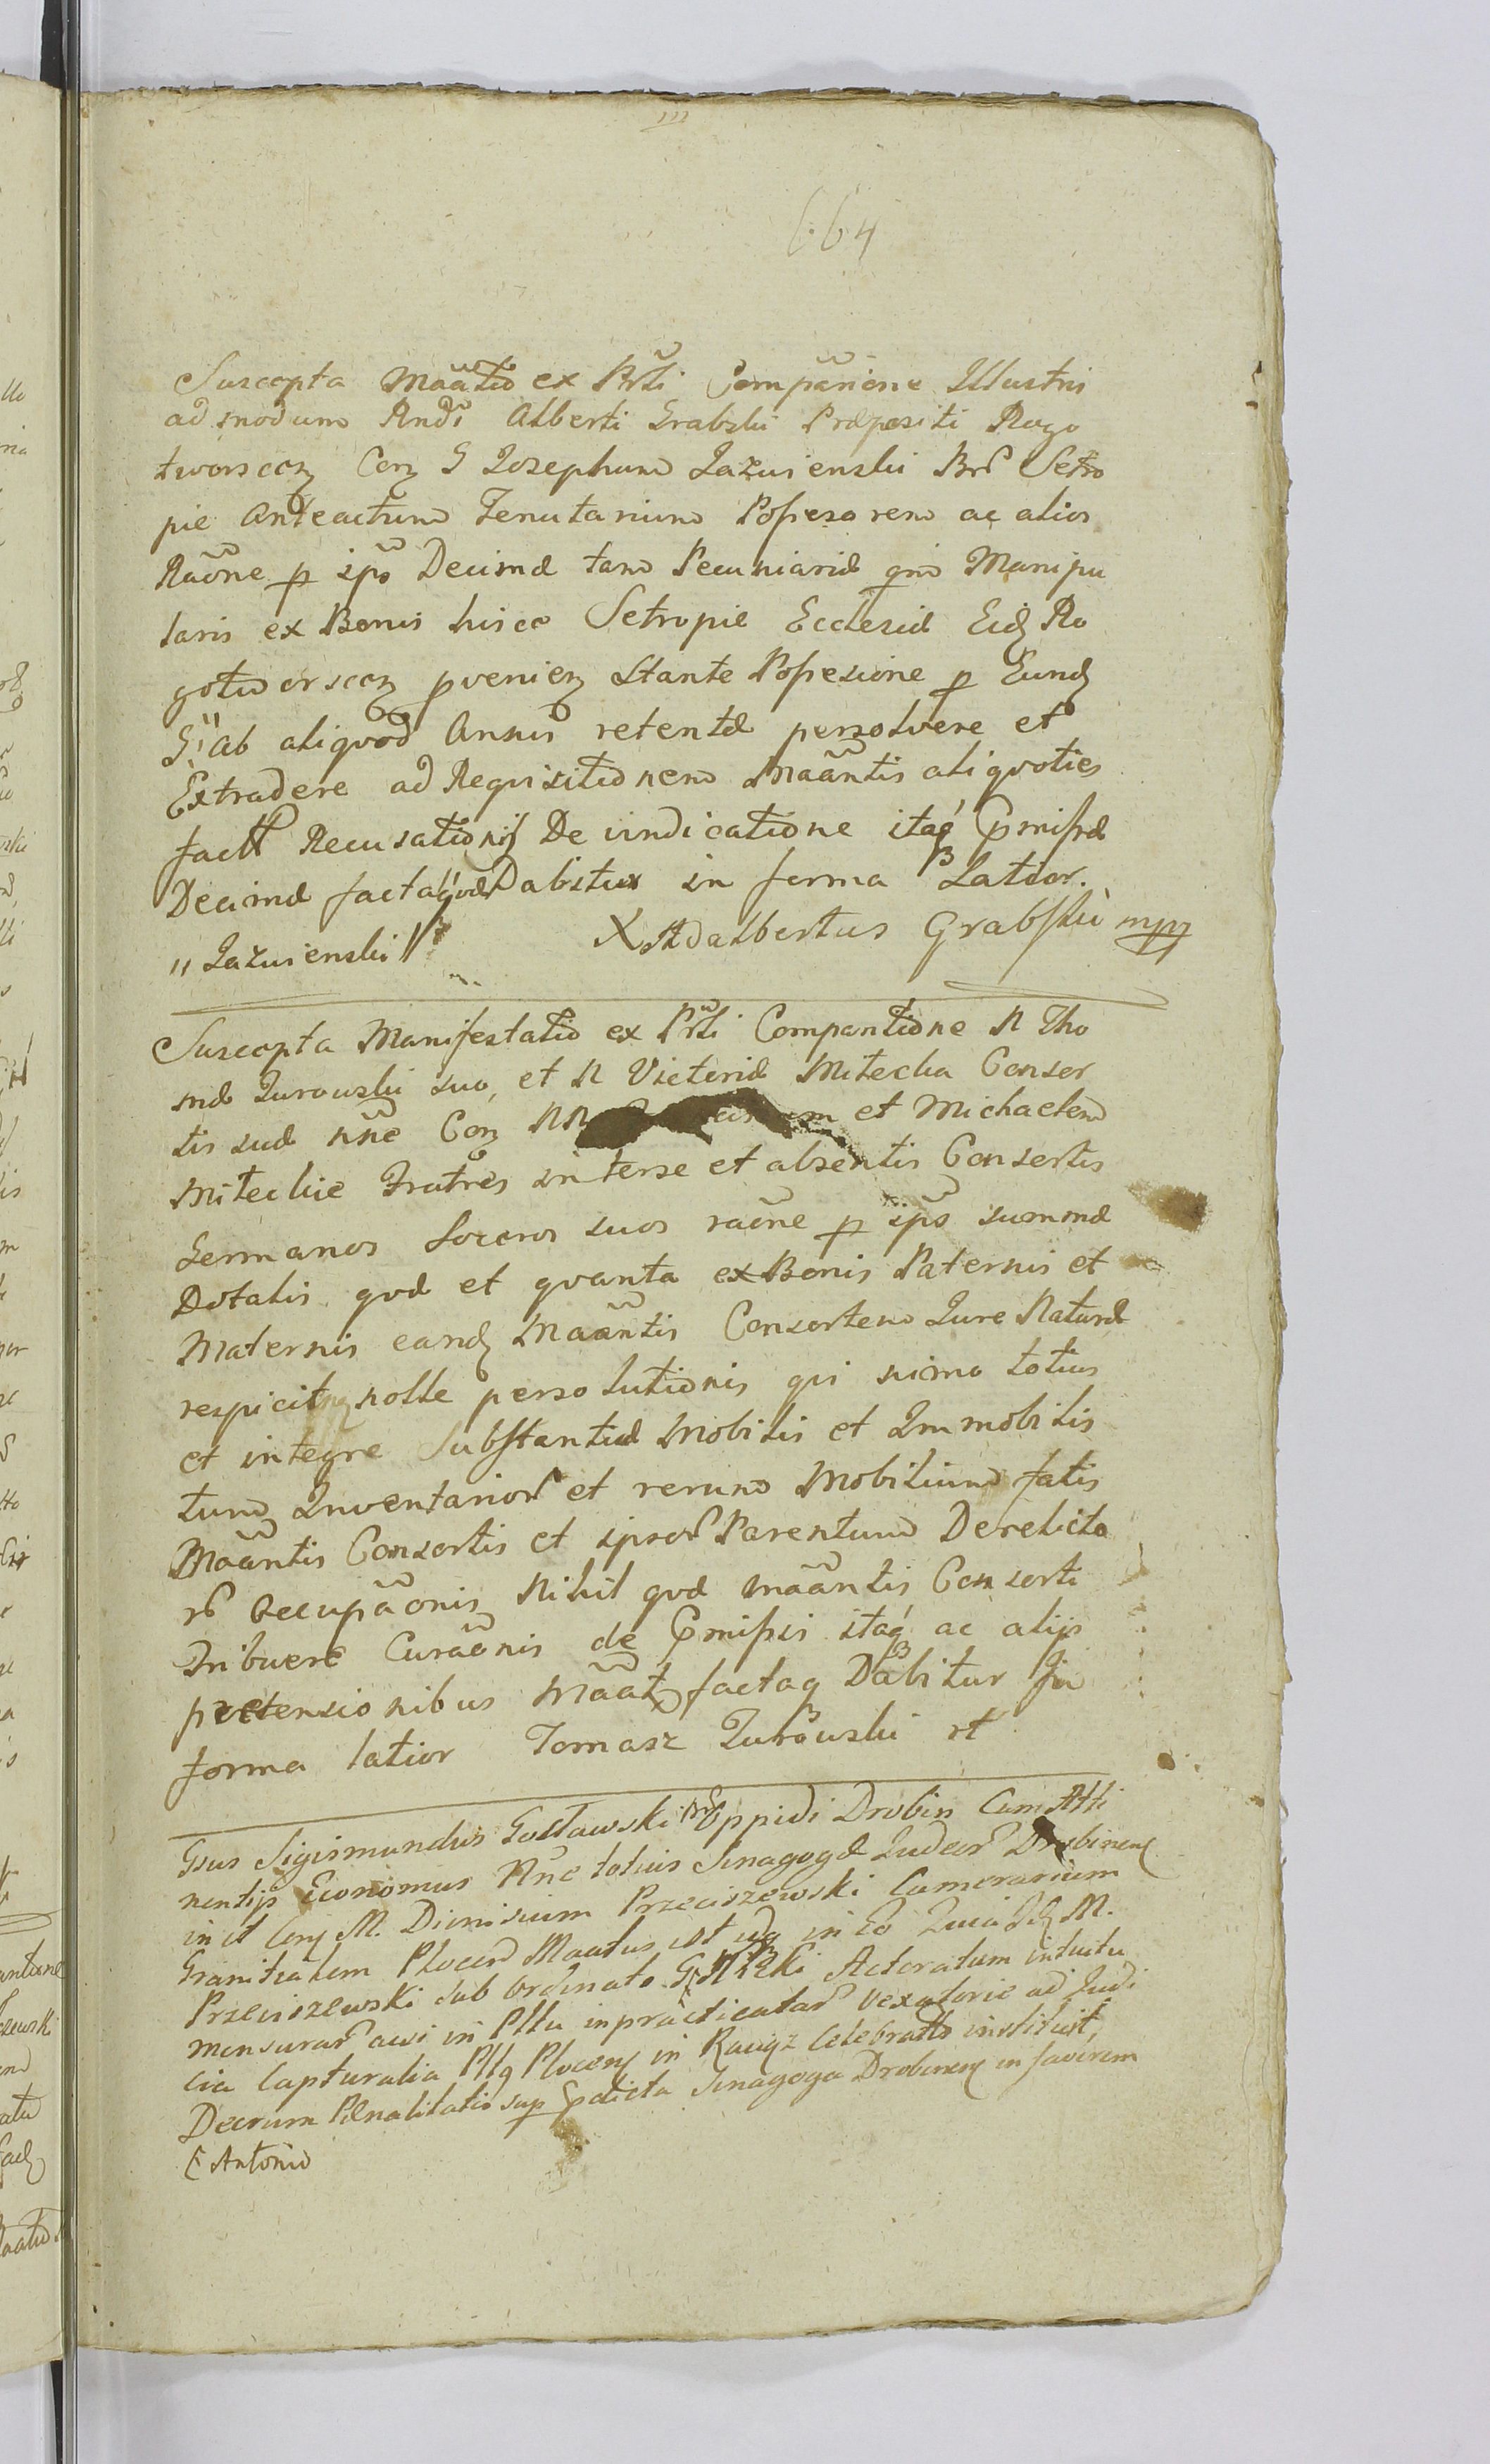 664
Suscepta Mãatio ex Prñti Compãrione Illustris
admodum Rndi Alberti Grabski Præpositi Rogo
tworscen Con G Josephum Łazwienski Brũ Setro
pie Anteactum Tenutarium Possesorem ac alios
Raõne p ipõ Decimæ tam Pecuniariæ qm Manipu
laris ex Bonis hisce Setropie Ecclesiæ Eid Ro
gotworscen pvenien Stante Possesione p Eund
G: ab aliquod Annis retentæ persolvere et
Extradere ad Requisitionem Mãantis aliquoties
fact Recusationis De vindicatione itaq Pmissæ
Decimæ facta quæ Dabitur in forma Latior.
" Łazwienski " X Adalbertus Grabski mpp
Suscepta Manifestatio ex Prñti Compantione N Tho
mæ Zurowski suo, et N Victoriæ Mitecka Consor
tis suæ nñe Con NN et Michaelem
Miteckie Fratres interse et absentis Consortis
Germanos Soceros suos raõne p ipõ summæ
Dotalis quæ et quanta ex Bonis Paternis et
Maternis eand Mãantis Consortem Jure Naturæ
respicit nolle persolutionis qui nimo totius
et integre Substantiæ Mobilis et Immobilis
tum Inventarior et rerum Mobilium fatis
Mãantis Consortis et ipsor Parentum Derelicta
r Occupãonis Nihil quæ mãantis Consorti
Tribuere Curaõnis de Pmissis itaq ac alijs
pretensionibus Mãat factaq Dabitur In
forma latior Tomasz Zurowski rt
Gsus Sigismundus Gostawski Oppidi Drobin Cum Atti
nentijs Economus Nñe totius Sinagogæ Judeor Drobinens
inct Con M. Dionisium Przeciszewski Camerarium
Granitialem Plocen Maatus est in Eo Quia Id M.
Przeciszewski Sub Ordinato G Actoratum intuitu
mensurar avi in Pttu inpracticatar vexatorie ad Judi
cia Capturalia Pttq Plocens in Raciąz Celebratto instituit,
Decrum Pænalitatis sup Pdicta Sinagoga Drobinens in favorem
G Antonio